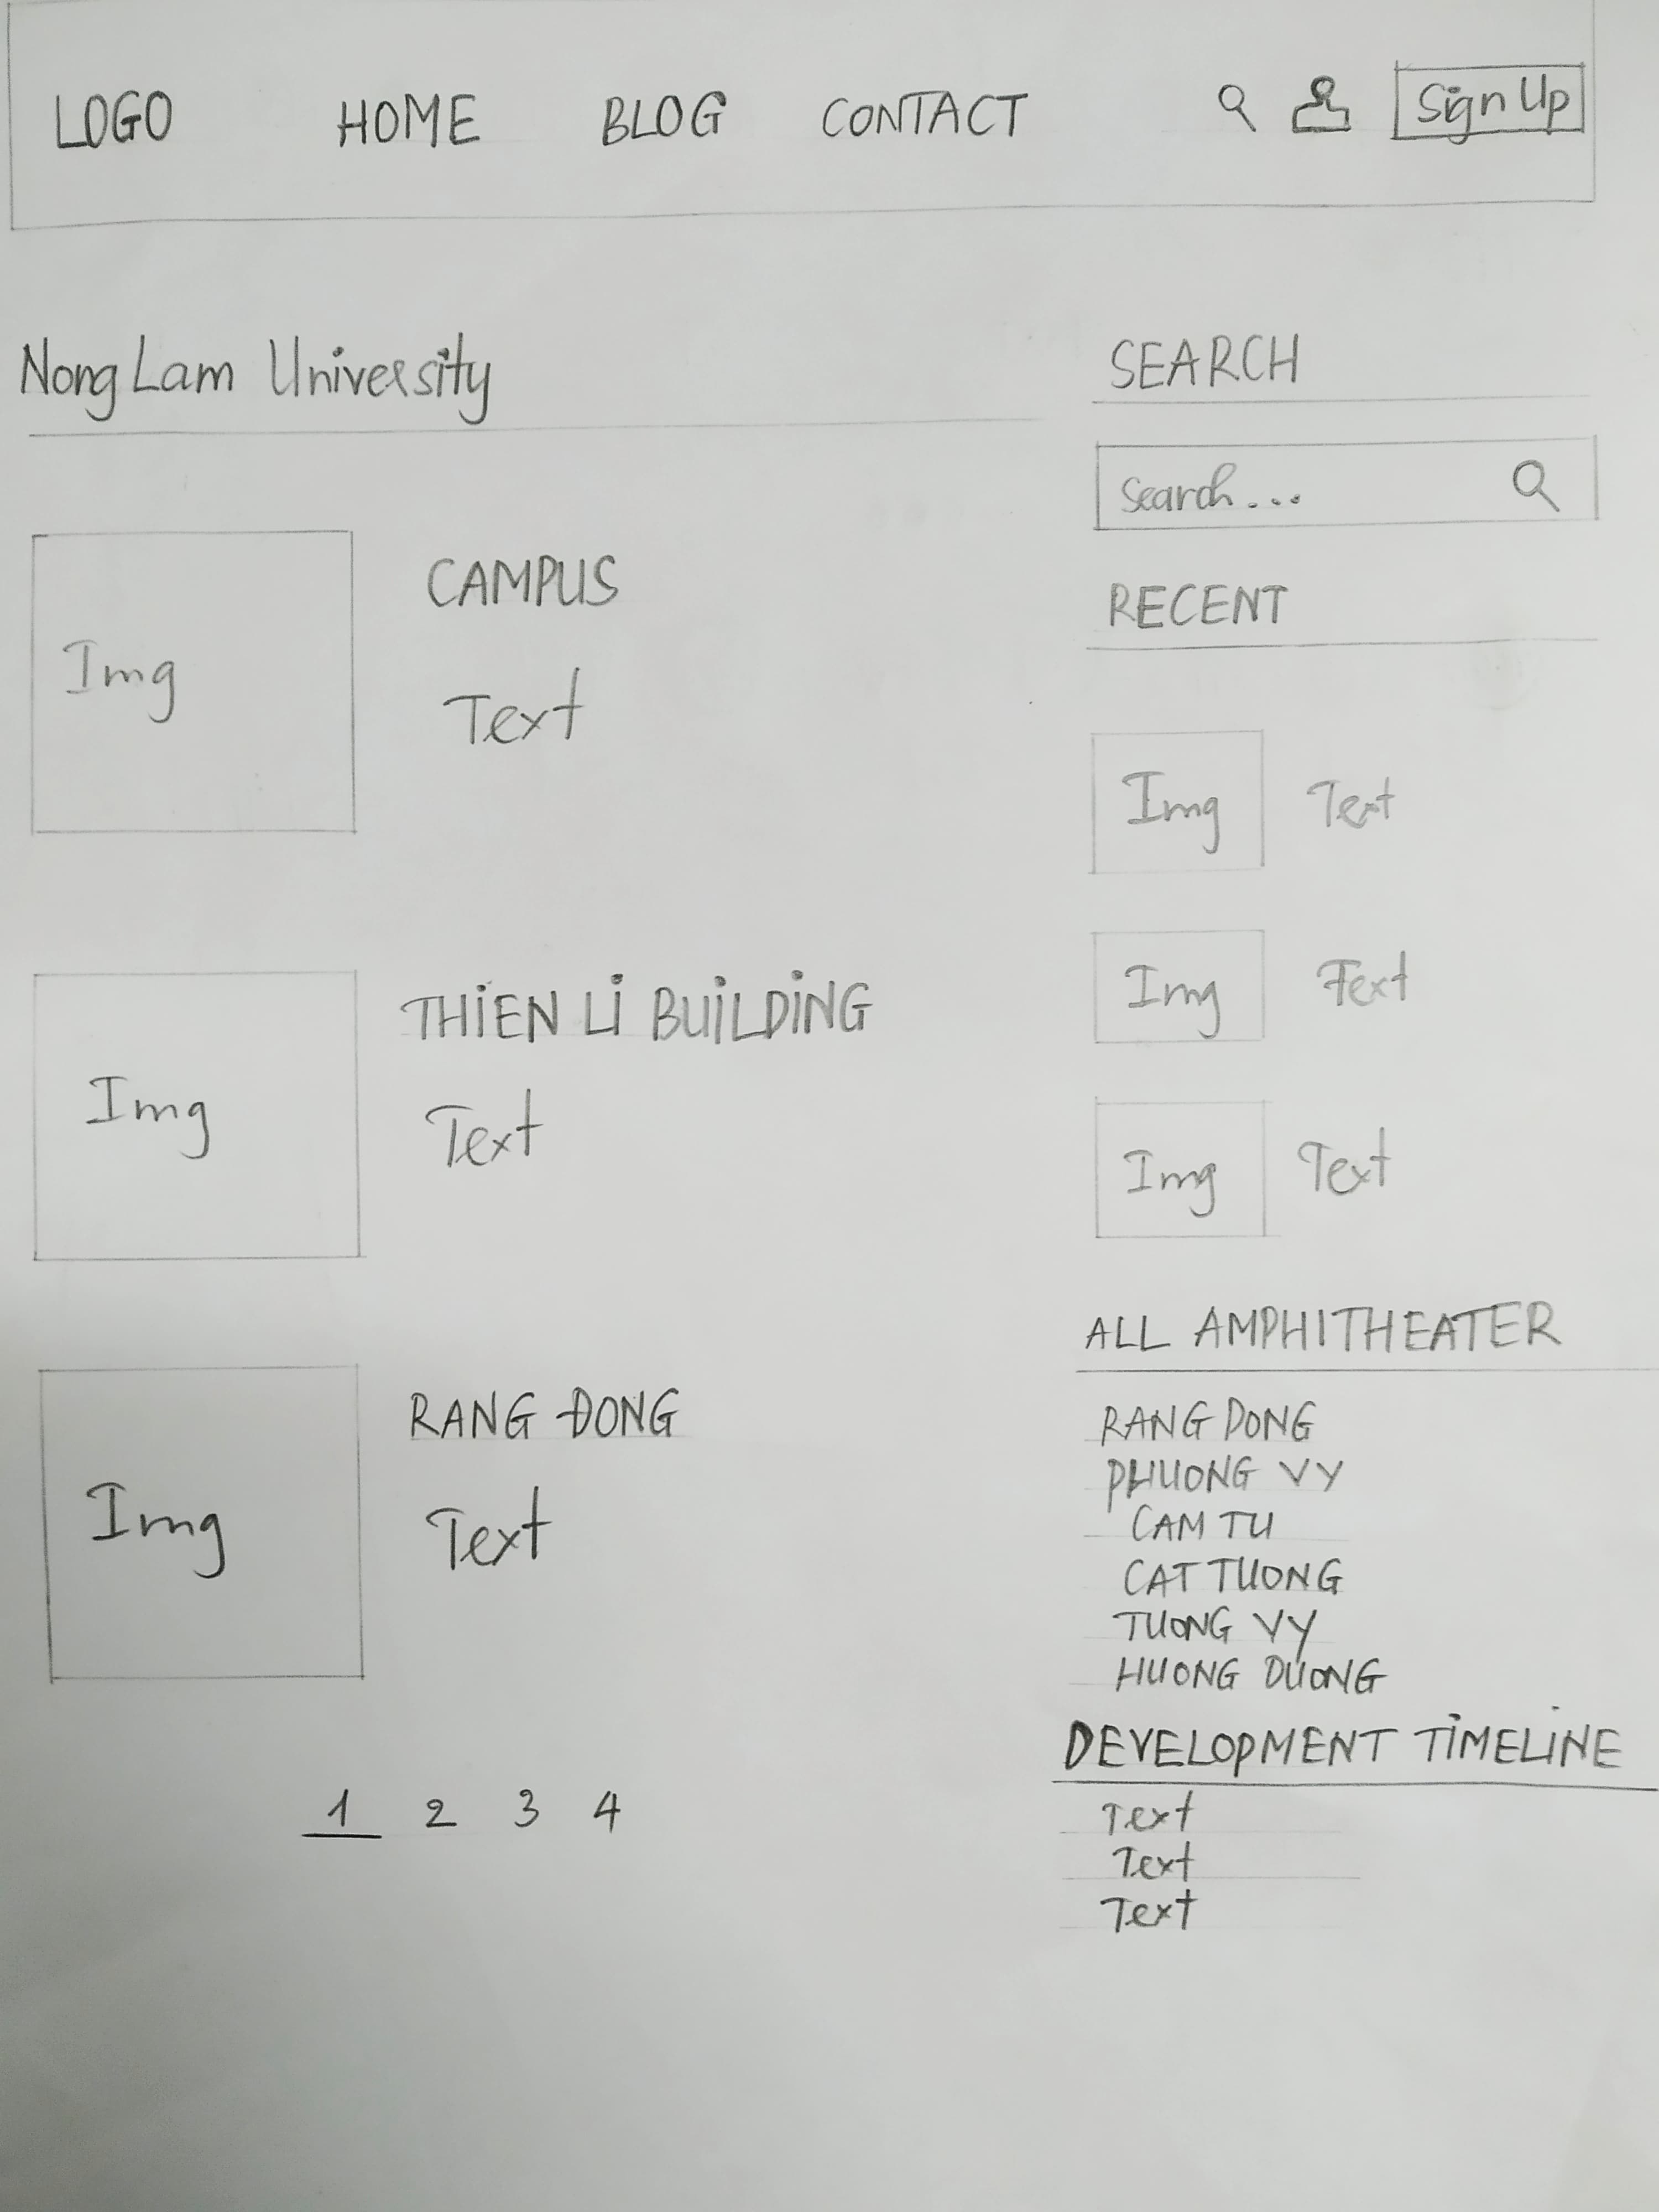 LOGO HOME BLOG CONTACT Sign Up
Nong Lam University
Img
CAMPUS
Text
Img
THiEN Li BUiLDiNG
Text
Img
RANG ĐONG
Text
1 2 3 4
SEARCH
Search...
RECENT
Img Text
Img Text
Img Text
ALL AMPHITHEATER
RANG DONG
PHUONG VY
CAM TU
CAT TUONG
TUONG VY
HUONG DUONG
DEVELOPMENT TiMELiNE
Text
Text
Text